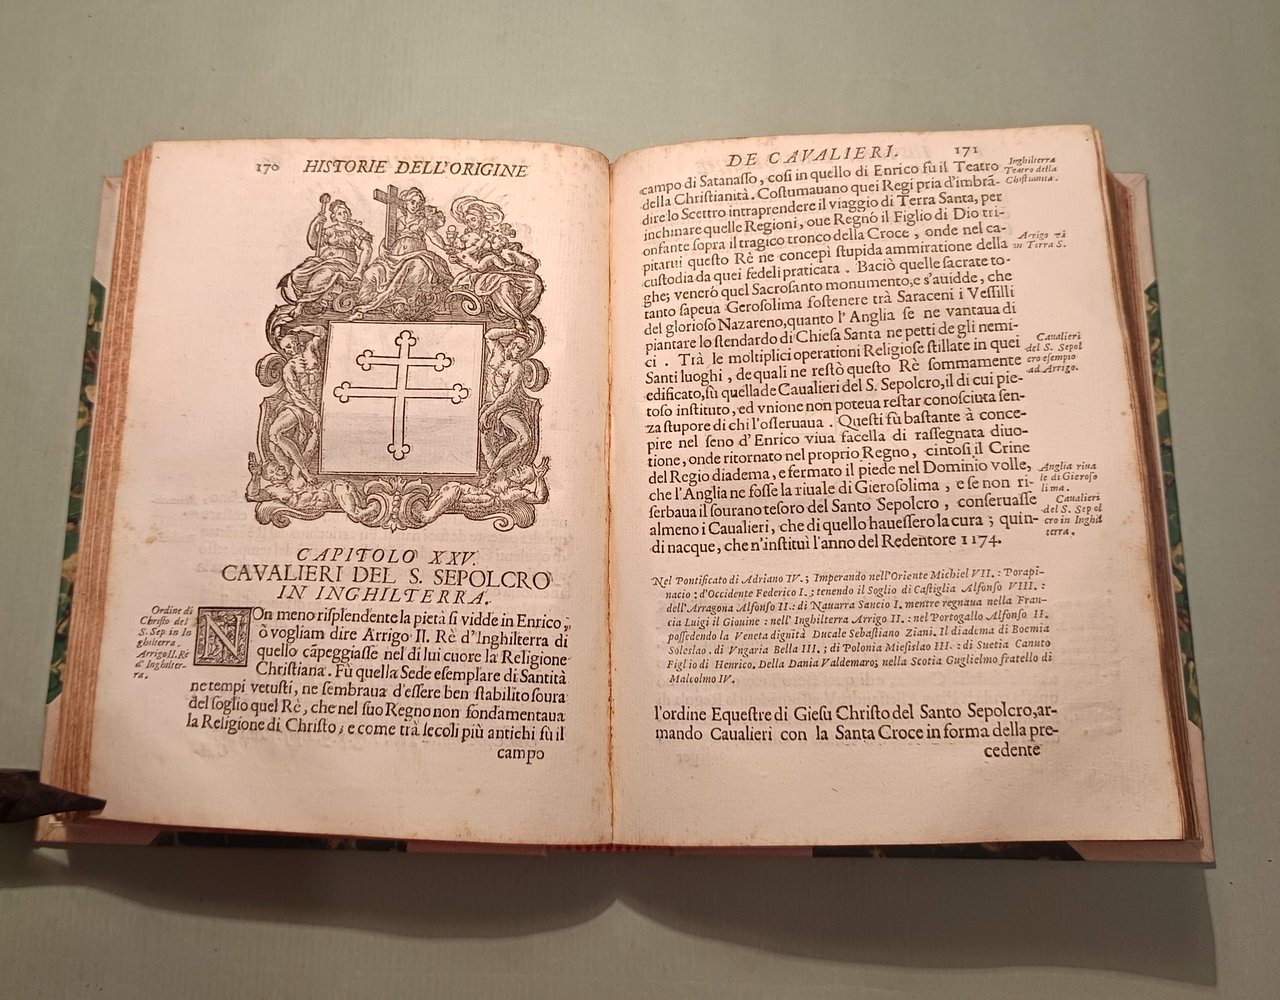 170 HISTORIE DELL'ORIGINE
CAPITOLO XXV.
CAVALIERI DEL S. SEPOLCRO
IN INGHILTERRA.
Ordine di
Christo del
S. Sep in In
ghilterra.
Arrigo II. Re
d' Inghilter-
ra.
NOn meno risplendente la pietà si vidde in Enrico,
ò vogliam dire Arrigo II. Rè d'Inghilterra di
quello cãpeggiasse nel di lui cuore la Religione
Christiana. Fù quella Sede esemplare di Santità
ne tempi vetusti, ne sembraua d'essere ben stabilito soura
del soglio quel Rè, che nel suo Regno non fondamentaua
la Religione di Christo; e come trà secoli più antichi fù il
campo
DE CAVALIERI. 171
campo di Satanasso, così in quello di Enrico fù il Teatro
della Christianità. Costumauano quei Regi pria d'imbrã-
dire lo Scettro intraprendere il viaggio di Terra Santa, per
inchinare quelle Regioni, oue Regnò il Figlio di Dio tri-
onfante sopra il tragico tronco della Croce, onde nel ca-
pitarui questo Rè ne concepì stupida ammiratione della
custodia da quei fedeli praticata. Baciò quelle sacrate to-
ghe; venerò quel Sacrosanto monumento, e s'auidde, che
tanto sapeua Gerosolima sostenere trà Saraceni i Vessilli
del glorioso Nazareno, quanto l'Anglia se ne vantaua di
piantare lo stendardo di Chiesa Santa ne petti de gli nemi-
ci. Trà le moltiplici operationi Religiose stillate in quei
Santi luoghi, de quali ne restò questo Rè sommamente
edificato, fù quella de Caualieri del S. Sepolcro, il di cui pie-
toso instituto, ed vnione non poteua restar conosciuta sen-
za stupore di chi l'osseruaua. Questi fù bastante à conce-
pire nel seno d'Enrico viua facella di rassegnata diuo-
tione, onde ritornato nel proprio Regno, cintosi il Crine
del Regio diadema, e fermato il piede nel Dominio volle,
che l'Anglia ne fosse la riuale di Gierosolima, e se non ri-
serbaua il sourano tesoro del Santo Sepolcro, conseruasse
almeno i Caualieri, che di quello hauessero la cura; quin-
di nacque, che n'instituì l'anno del Redentore 1174.
Inghilterra
Teatro della
Christianita.
Arrigo và
in Terra S.
Caualieri
del S. Sepol
cro esempio
ad Arrigo.
Anglia riua
le di Gieroso
lima.
Caualieri
del S. Sepol
cro in Inghil
terra.
Nel Pontificato di Adriano IV.; Imperando nell'Oriente Michiel VII.: Porapi-
nacio: d'Occidente Federico I.; tenendo il Soglio di Castiglia Alfonso VIII.:
dell'Arragona Alfonso II.: di Nauarra Sancio I. mentre regnaua nella Fran-
cia Luigi il Giouine: nell' Inghilterra Arrigo II.: nel Portogallo Alfonso II.
possedendo la Veneta dignità Ducale Sebastiano Ziani. Il diadema di Boemia
Soleslao. di Vngaria Bella III.; di Polonia Miesislao III.: di Suetia Canuto
Figlio di Henrico. Della Dania Valdemaro; nella Scotia Guglielmo fratello di
Malcolmo IV.
l'ordine Equestre di Giesù Christo del Santo Sepolcro, ar-
mando Caualieri con la Santa Croce in forma della pre-
cedente